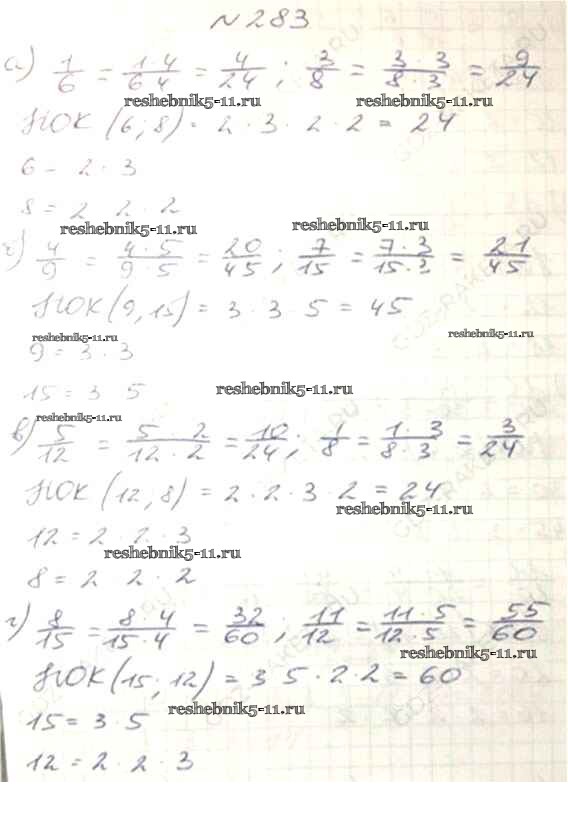 № 283
а) 1/6 = 1·4/6·4 = 4/24; 3/8 = 3·3/8·3 = 9/24
reshebnik5-11.ru reshebnik5-11.ru
НОК (6; 8) = 2 · 3 · 2 · 2 = 24
6 = 2 · 3
8 = 2 2 · 2
reshebnik5-11.ru reshebnik5-11.ru
б) 4/9 = 4·5/9·5 = 20/45; 7/15 = 7·3/15·3 = 21/45
НОК (9, 15) = 3 · 3 5 = 45
reshebnik5-11.ru reshebnik5-11.ru
9 = 3 · 3
15 = 3 5 reshebnik5-11.ru
reshebnik5-11.ru
в) 5/12 = 5·2/12·2 = 10/24; 1/8 = 1·3/8·3 = 3/24
НОК (12, 8) = 2 · 2 · 3 · 2 = 24
reshebnik5-11.ru
12 = 2 · 2 · 3
reshebnik5-11.ru
8 = 2 2 · 2
г) 8/15 = 8·4/15·4 = 32/60; 11/12 = 11·5/12·5 = 55/60
reshebnik5-11.ru
НОК (15; 12) = 3 5 · 2 · 2 = 60
reshebnik5-11.ru
15 = 3 · 5
12 = 2 · 2 · 3